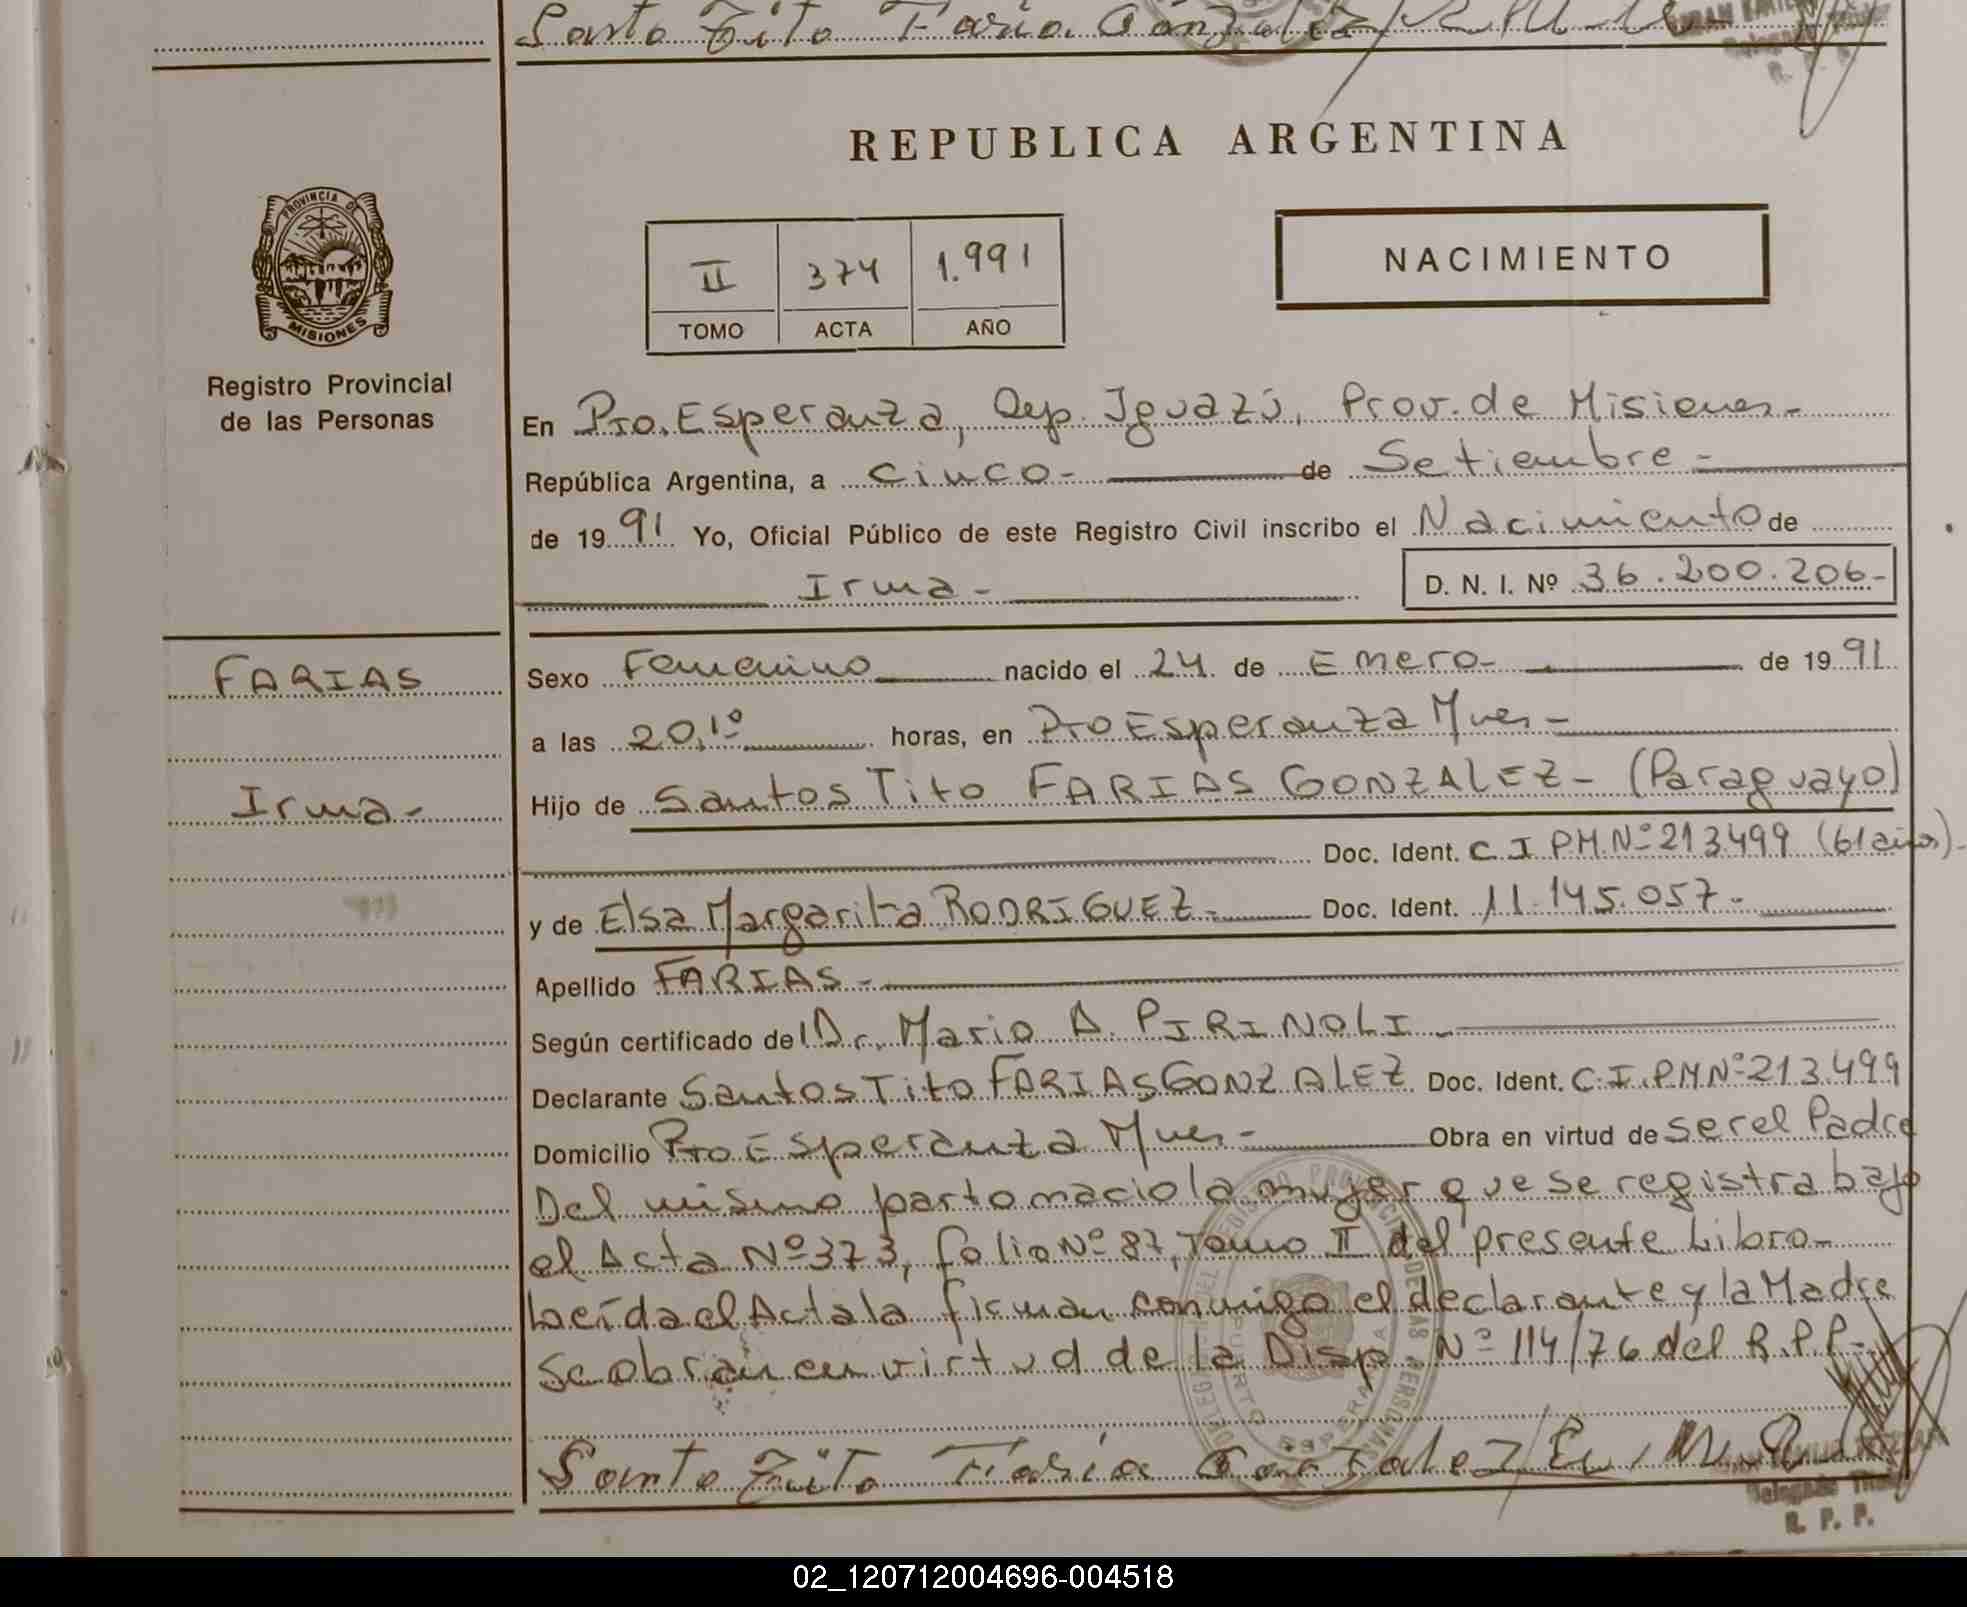 Santo Tito Faria Gonzalez
REPUBLICA ARGENTINA
PROVINCIA DE
MISIONES
Registro Provincial
de las Personas
II 374 1.991
TOMO ACTA AÑO
NACIMIENTO
En Pto. Esperanza, Dep. Iguazú, Prov. de Misiones-
República Argentina, a cinco- de Setiembre-
de 1991 Yo, Oficial Público de este Registro Civil inscribo el Nacimiento de
Irma- D. N. I. Nº 36.200.206-
FARIAS
Irma-
Sexo Femenino nacido el 24 de Enero- de 1991
a las 20,10 horas, en Pto Esperanza Mnes-
Hijo de Santos Tito FARIAS GONZALEZ- (Paraguayo)
Doc. Ident. C.I.P.M.Nº 213499 (61 años)-
y de Elsa Margarita RODRIGUEZ- Doc. Ident. 11.145.057-
Apellido FARIAS-
Según certificado del Dr. Mario A. PIRINOLI-
Declarante Santos Tito FARIAS GONZALEZ Doc. Ident. C.I.P.M Nº 213.499
Domicilio Pto Esperanza Mnes- Obra en virtud de ser el Padre
Del mismo parto nacio la mujer que se registra bajo
el Acta Nº 373, folio Nº 87, Tomo II del presente Libro-
Leída el Acta la firman conmigo el declarante y la Madre
se obran en virtud de la Disp. Nº 114/76 del R.P.P.-
Santo Tito Faria Gonzalez
R. P. P.
02_120712004696-004518